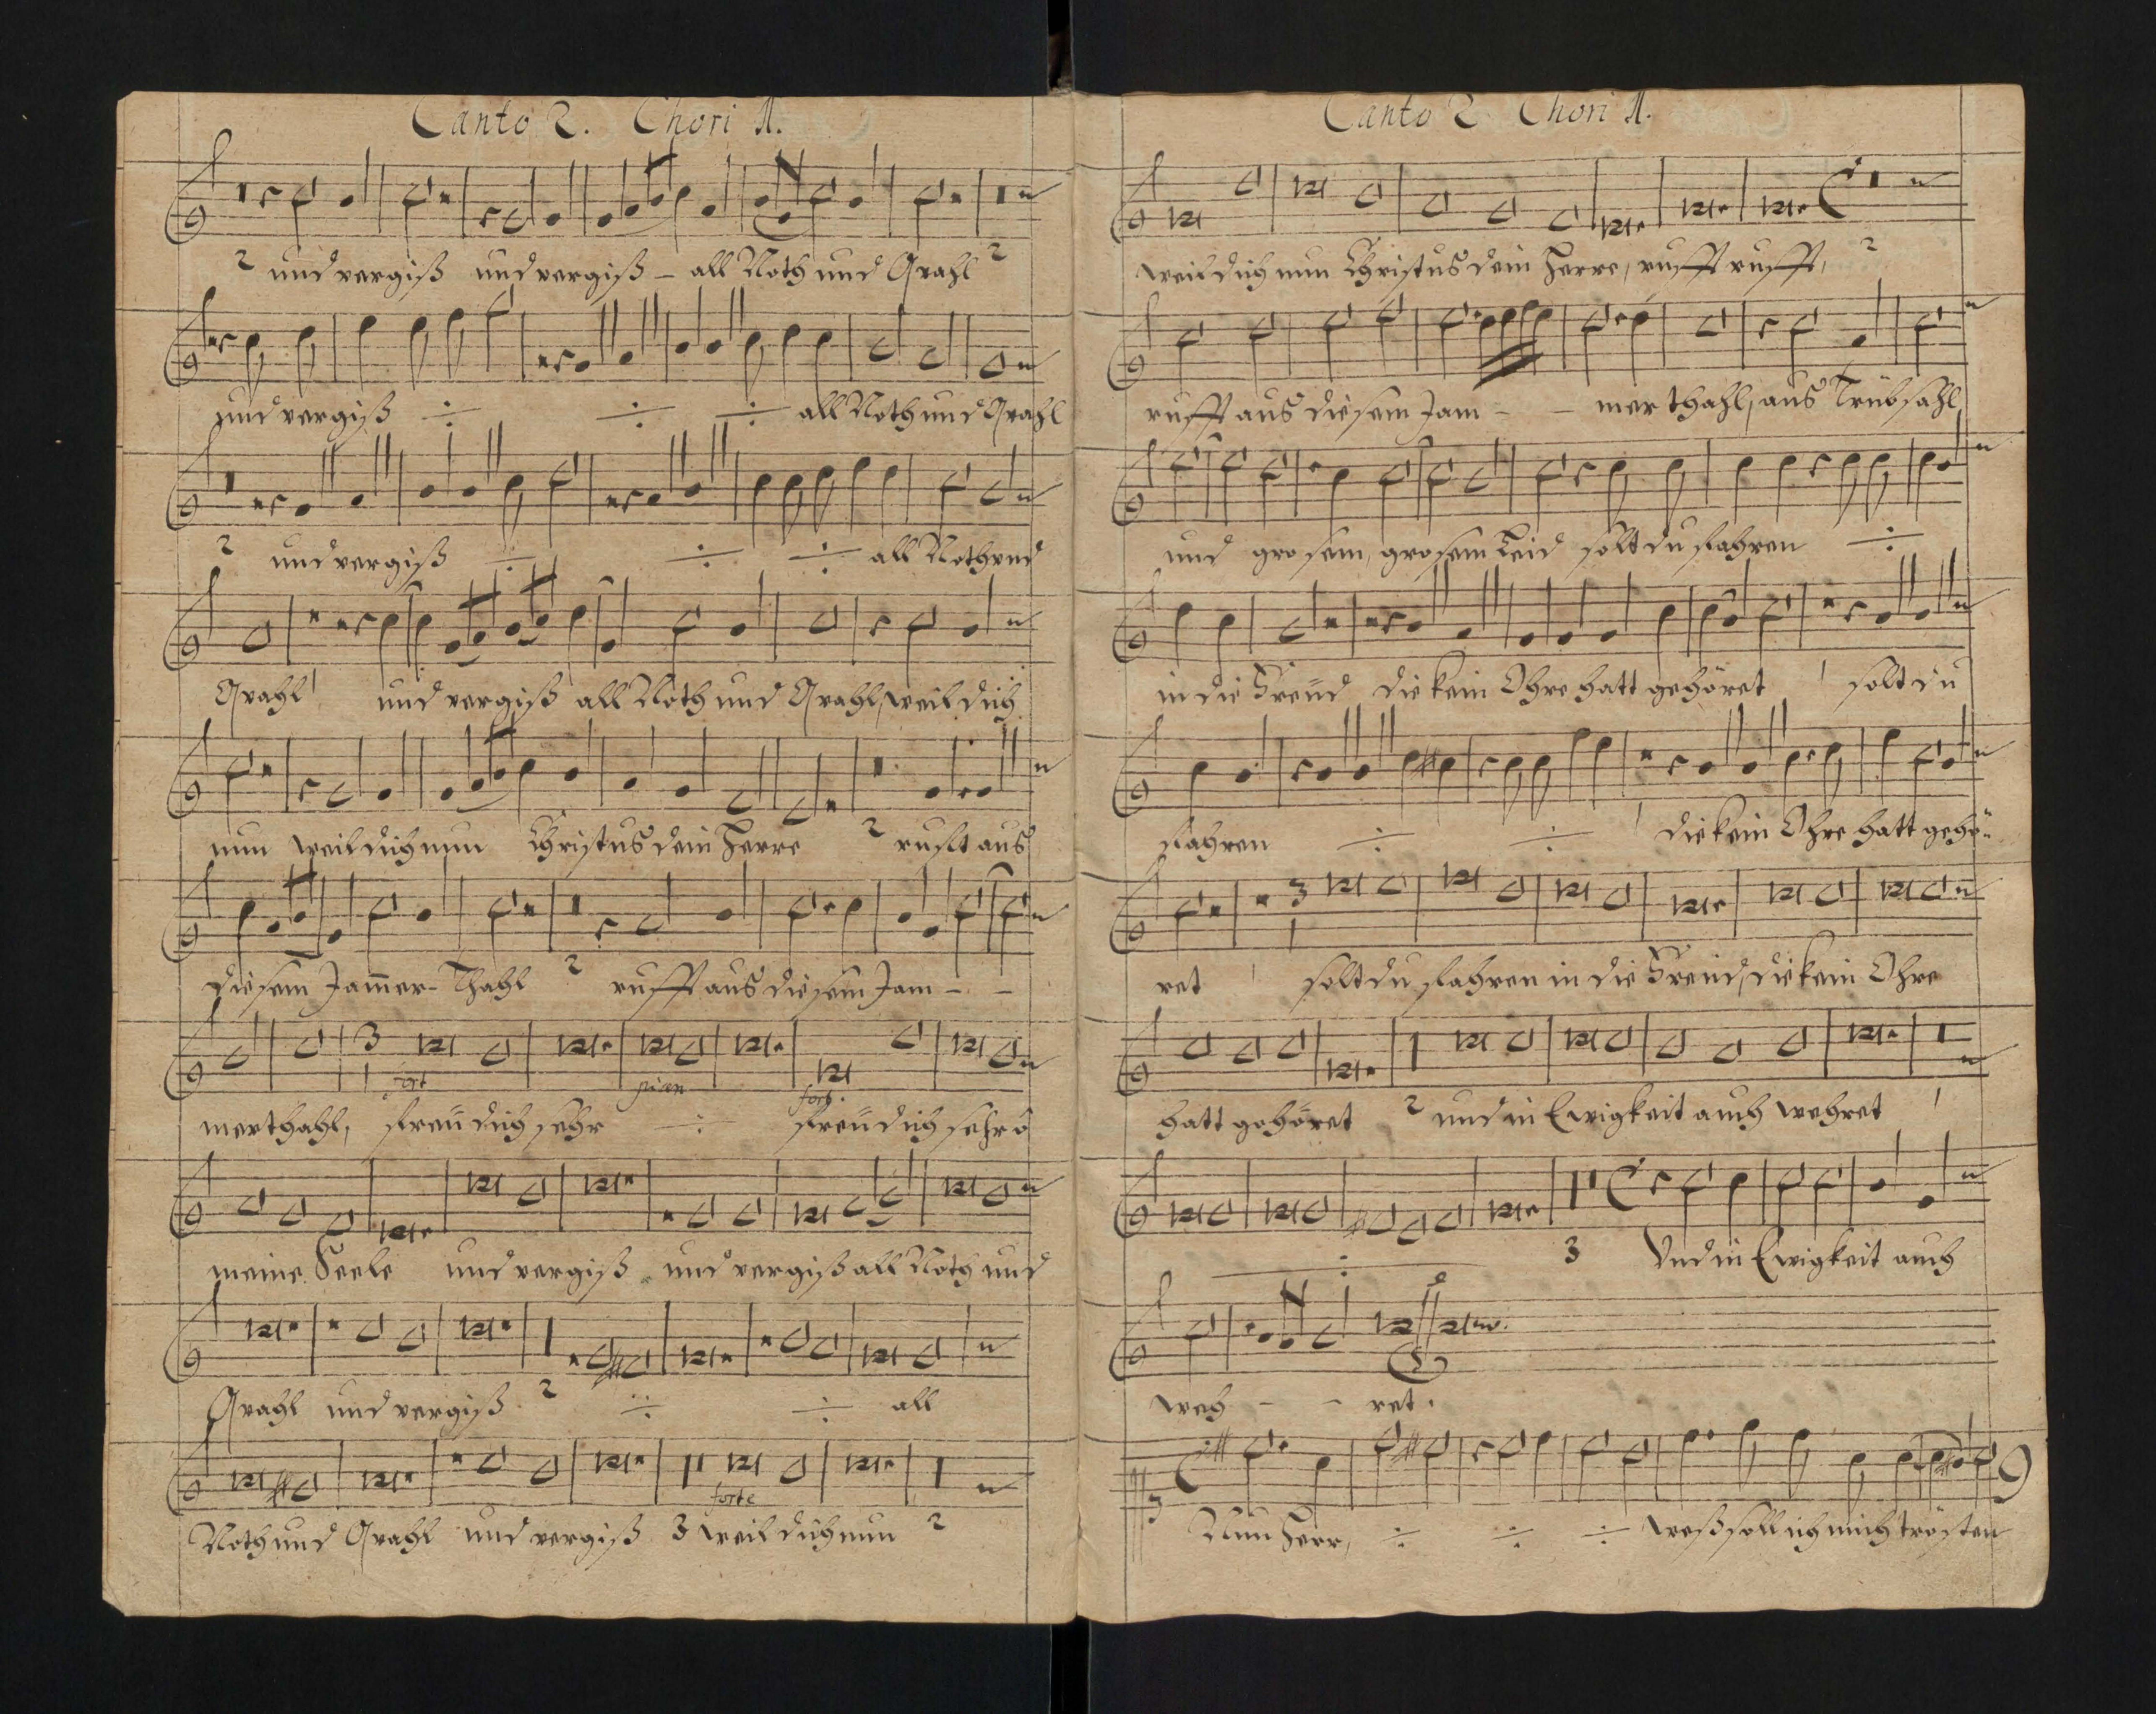 Canto 2. Chori 1.
2 und vergiß und vergiß – all Noth und Qvahl 2
und vergiß ÷ ÷ ÷ all Noth und Qvahl
2 und vergiß ÷ ÷ ÷ all Noth vnd
Qvahl und vergiß all Noth und Qvahl, weil dich
nun weil dich nun Christus dein Herre 2 rufft aus
diesem Jam̄er-Thahl 2 rufft aus diesem Jam - -
3
1
fort pian fort.
merthahl, freu dich sehr ÷ freu dich sehr o
meine Seele und vergiß und vergiß all Noth und
Qvahl und vergiß 2 ÷ ÷ all
forte
Noth und Qvahl und vergiß 3 weil dich nun 2
Canto 2 Chori 1.
weil dich nun Christus dein Herre, rufft rufft, 2
rufft aus diesem Jam - - merthahl, aus Trübsahl
und grosem, grosem Leid solt du fahren ÷
in die Freud die kein Ohre hatt gehöret solt du
fahren ÷ ÷ die kein Ohre hatt gehö-
3
1
ret solt du fahren in die Freud, die kein Ohre
hatt gehöret 2 und in Ewigkeit auch wehret 1
÷ 3 Vnd in Ewigkeit auch
weh - - ret.
3
Nun Herr, ÷ ÷ ÷ weß soll ich mich trösten